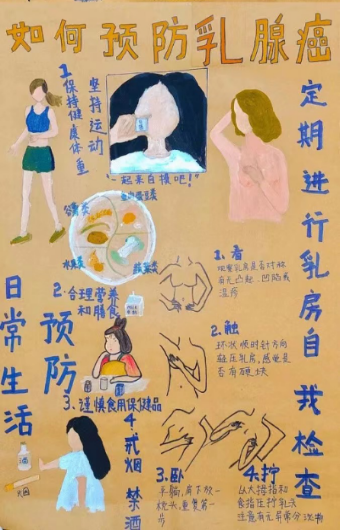 如何预防乳腺癌
1.保持健康体重
坚持运动
一起来自摸吧!!
鱼肉蛋豆类
谷薯类
水果类
蔬菜类
2.合理营养
和膳食
3.谨慎食用保健品
4.戒烟 禁酒
酒
烟
日常生活
预防
定期进行乳房自我检查
1.看
观察乳房是否对称
有无凸起、凹陷或
湿疹
2.触
环状顺时针方向
轻压乳房,感觉是
否有硬块
3.卧
平躺,肩下放一
枕头,重复第一
步
4.拧
以大拇指和
食指压拧乳头
注意有无异常分泌物